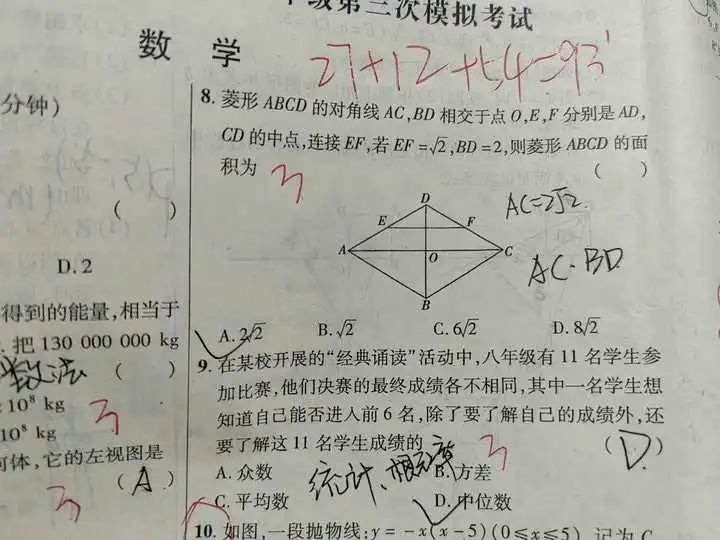 年级第三次模拟考试
数 学
27+12+54=93
分钟)
( )
D.2
得到的能量,相当于
把 130 000 000 kg
数法 ( )
10⁸ kg
3
10⁸ kg
何体,它的左视图是
(A)
3
8. 菱形 ABCD 的对角线 AC,BD 相交于点 O,E,F 分别是 AD,
CD 的中点,连接 EF,若 EF=√2,BD=2,则菱形 ABCD 的面
积为 ( )
3
D
E F
A O C
B
AC=2√2
AC·BD
A.2√2 B.√2 C.6√2 D.8√2
9. 在某校开展的“经典诵读”活动中,八年级有 11 名学生参
加比赛,他们决赛的最终成绩各不相同,其中一名学生想
知道自己能否进入前 6 名,除了要了解自己的成绩外,还
要了解这 11 名学生成绩的 (D)
3
A.众数 B.方差
统计、概率
C.平均数 D.中位数
10. 如图,一段抛物线:y=-x(x-5)(0≤x≤5),记为 C